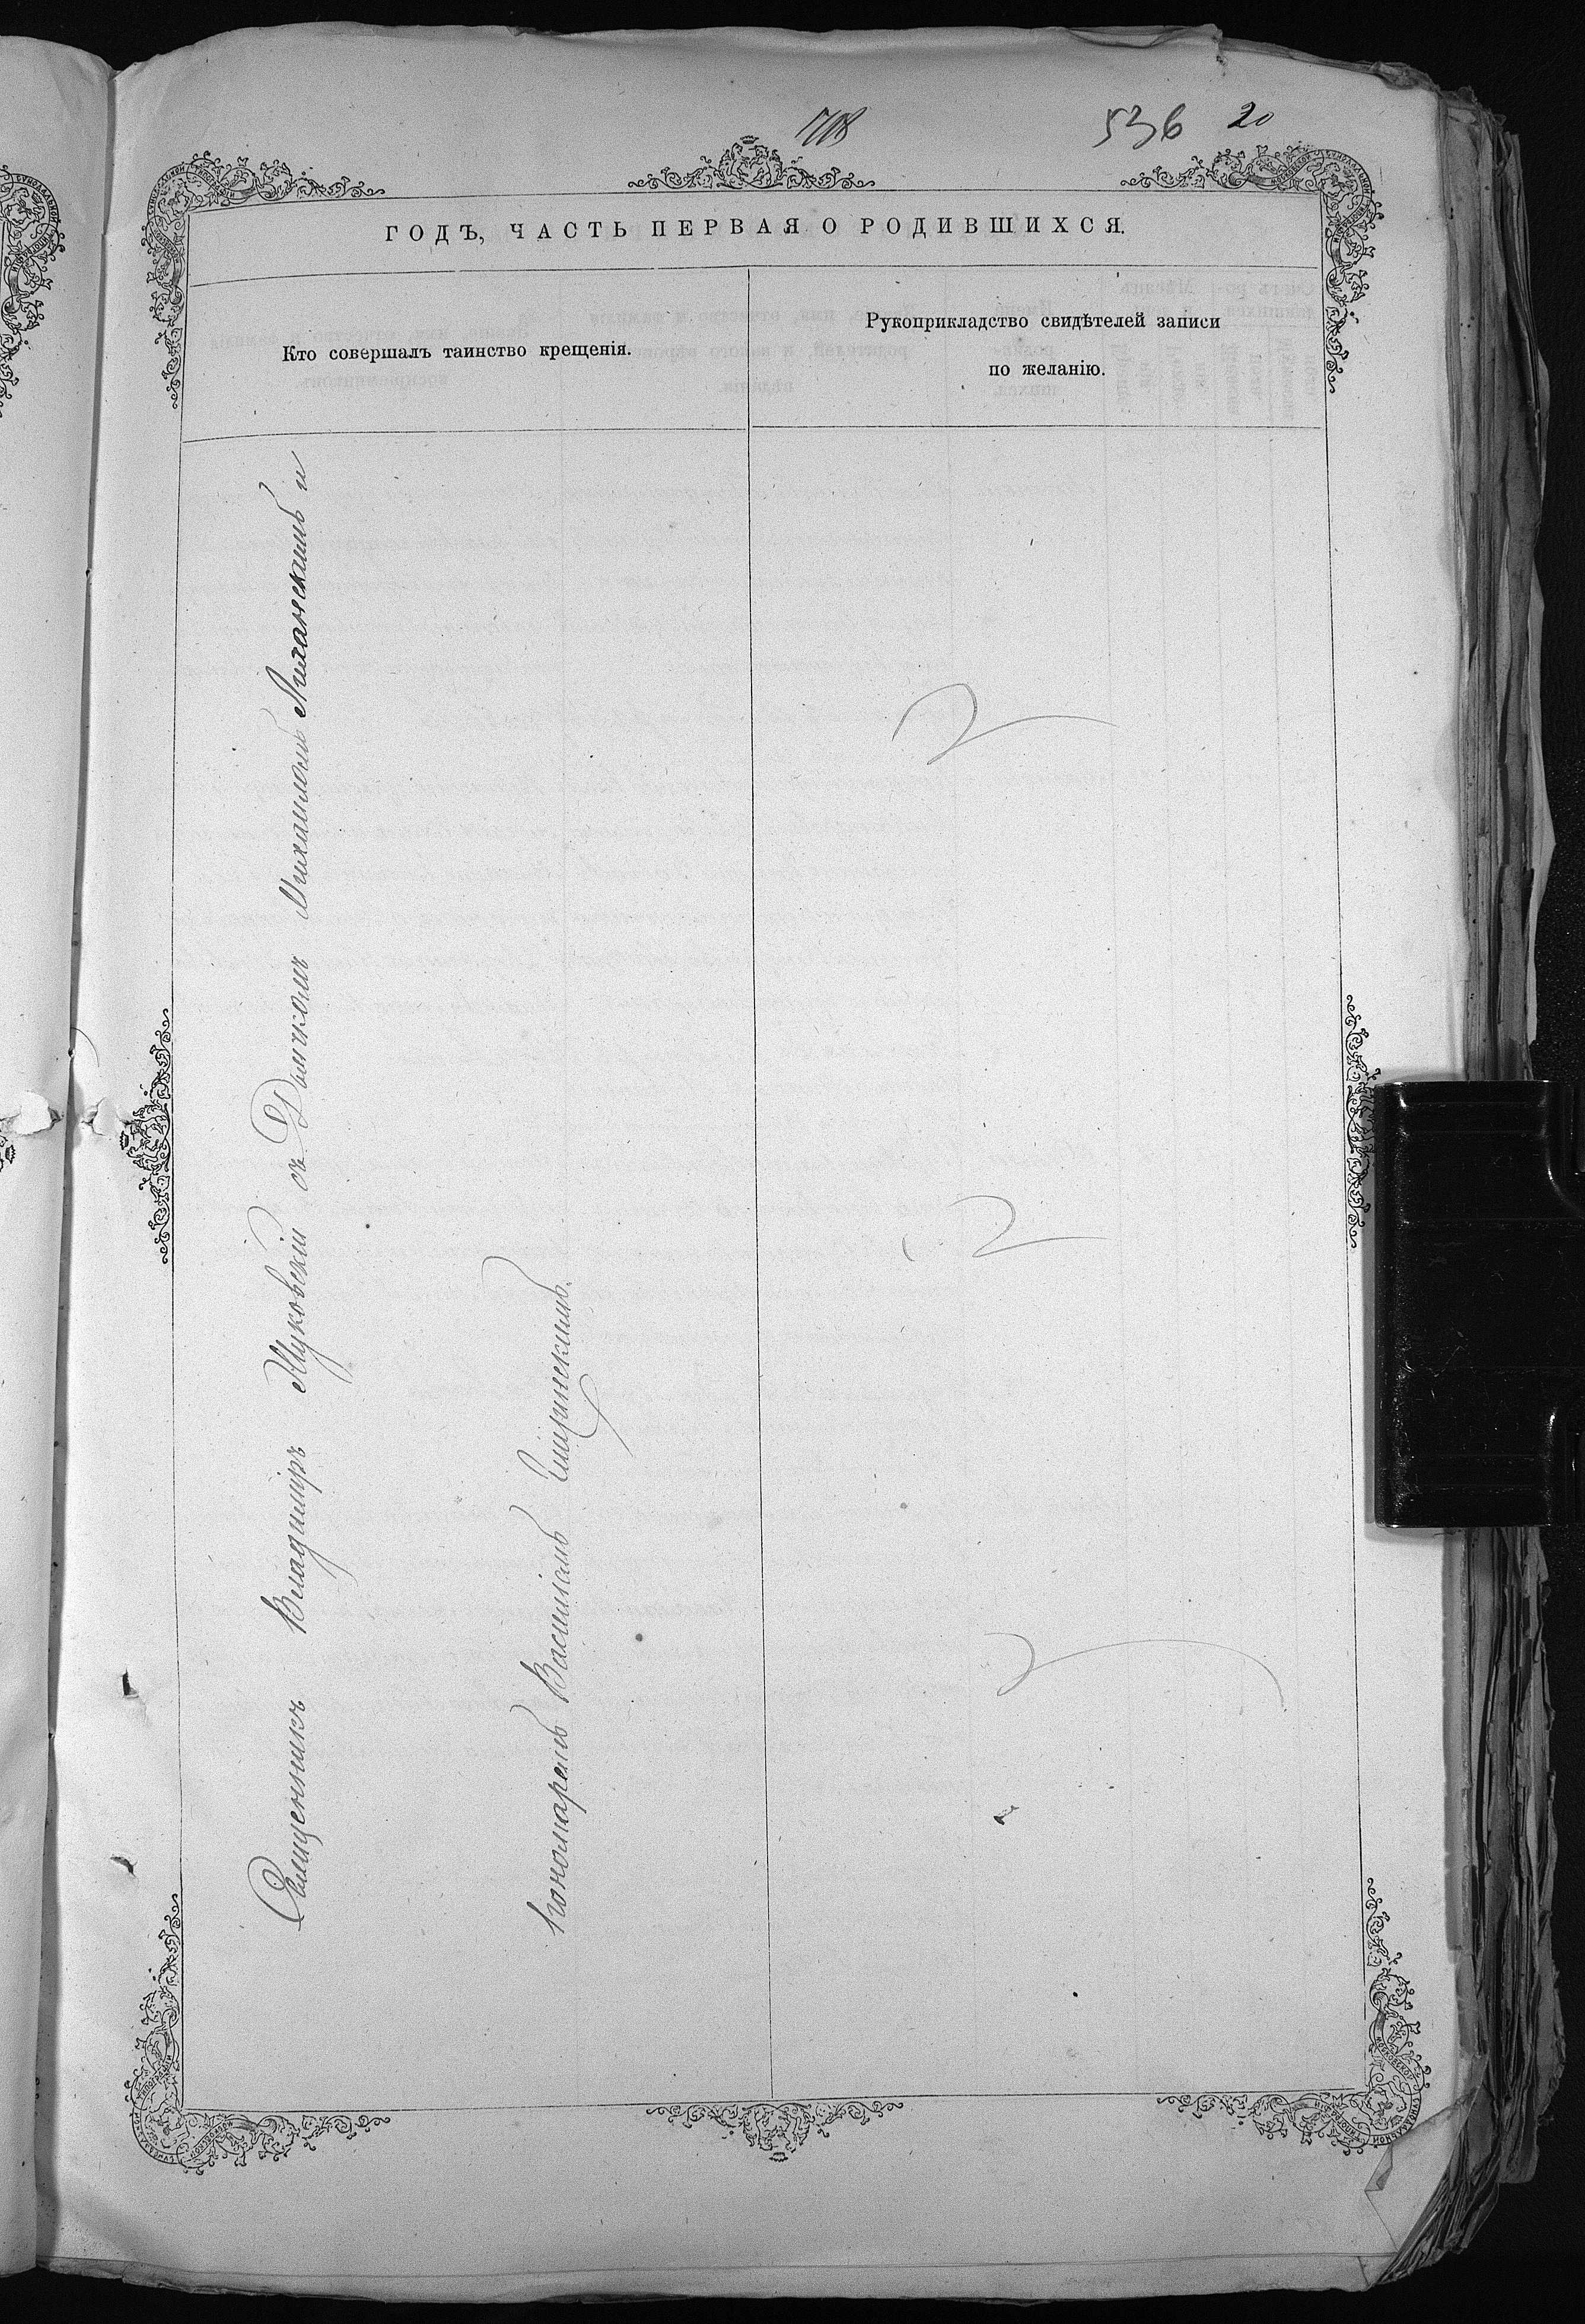 536 20
ГОДЪ, ЧАСТЬ ПЕРВАЯ О РОДИВШИХСЯ.
Кто совершалъ таинство крещенія.
Рукоприкладство свидѣтелей записи
по желанію.
Священникъ Владиміръ Жуковскій съ Дьячкомъ Михаиломъ Лиханскимъ и
пономаремъ Василіемъ Чишинскимъ.